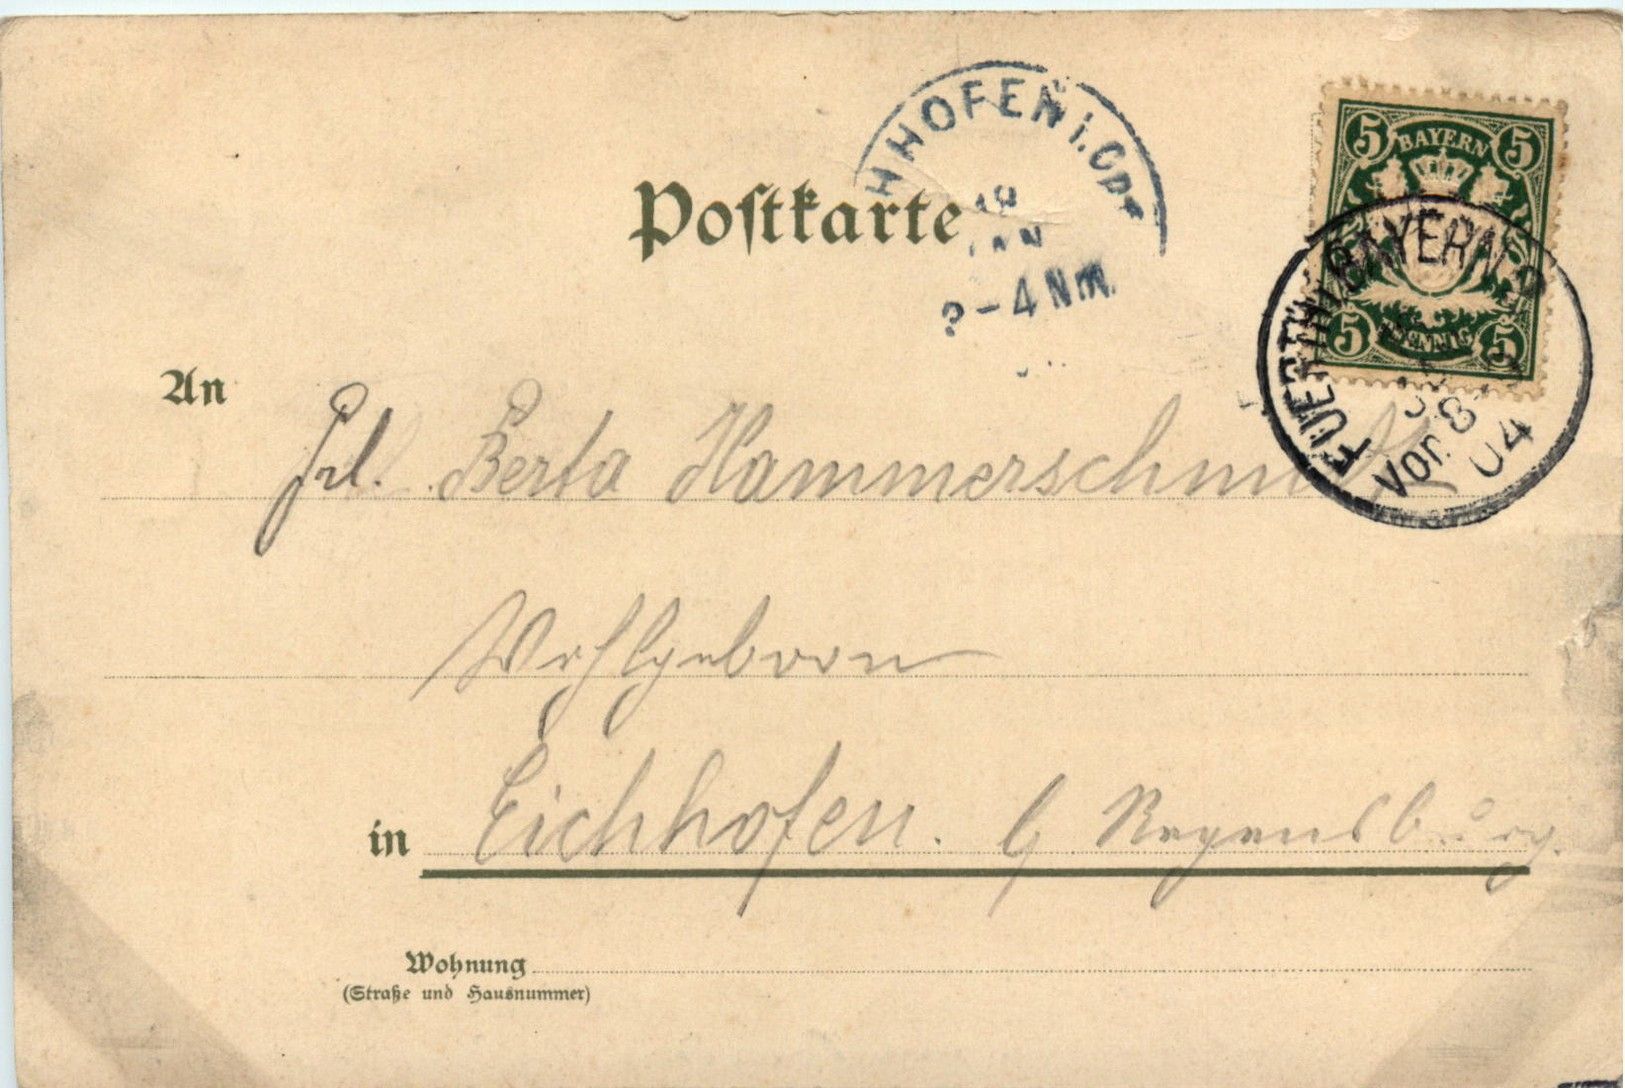 HHOFEN i. Opf
Postkarte
18
JAN
3-4 Nm.
5 BAYERN 5
5 PFENNIG 5
FUERTH BAYERN 2
Vor. 8
04
An
Frl. Berta Hammerschmidt
Wohlgeboren
in Eichhofen. b/ Regensburg.
Wohnung
(Straße und Hausnummer)